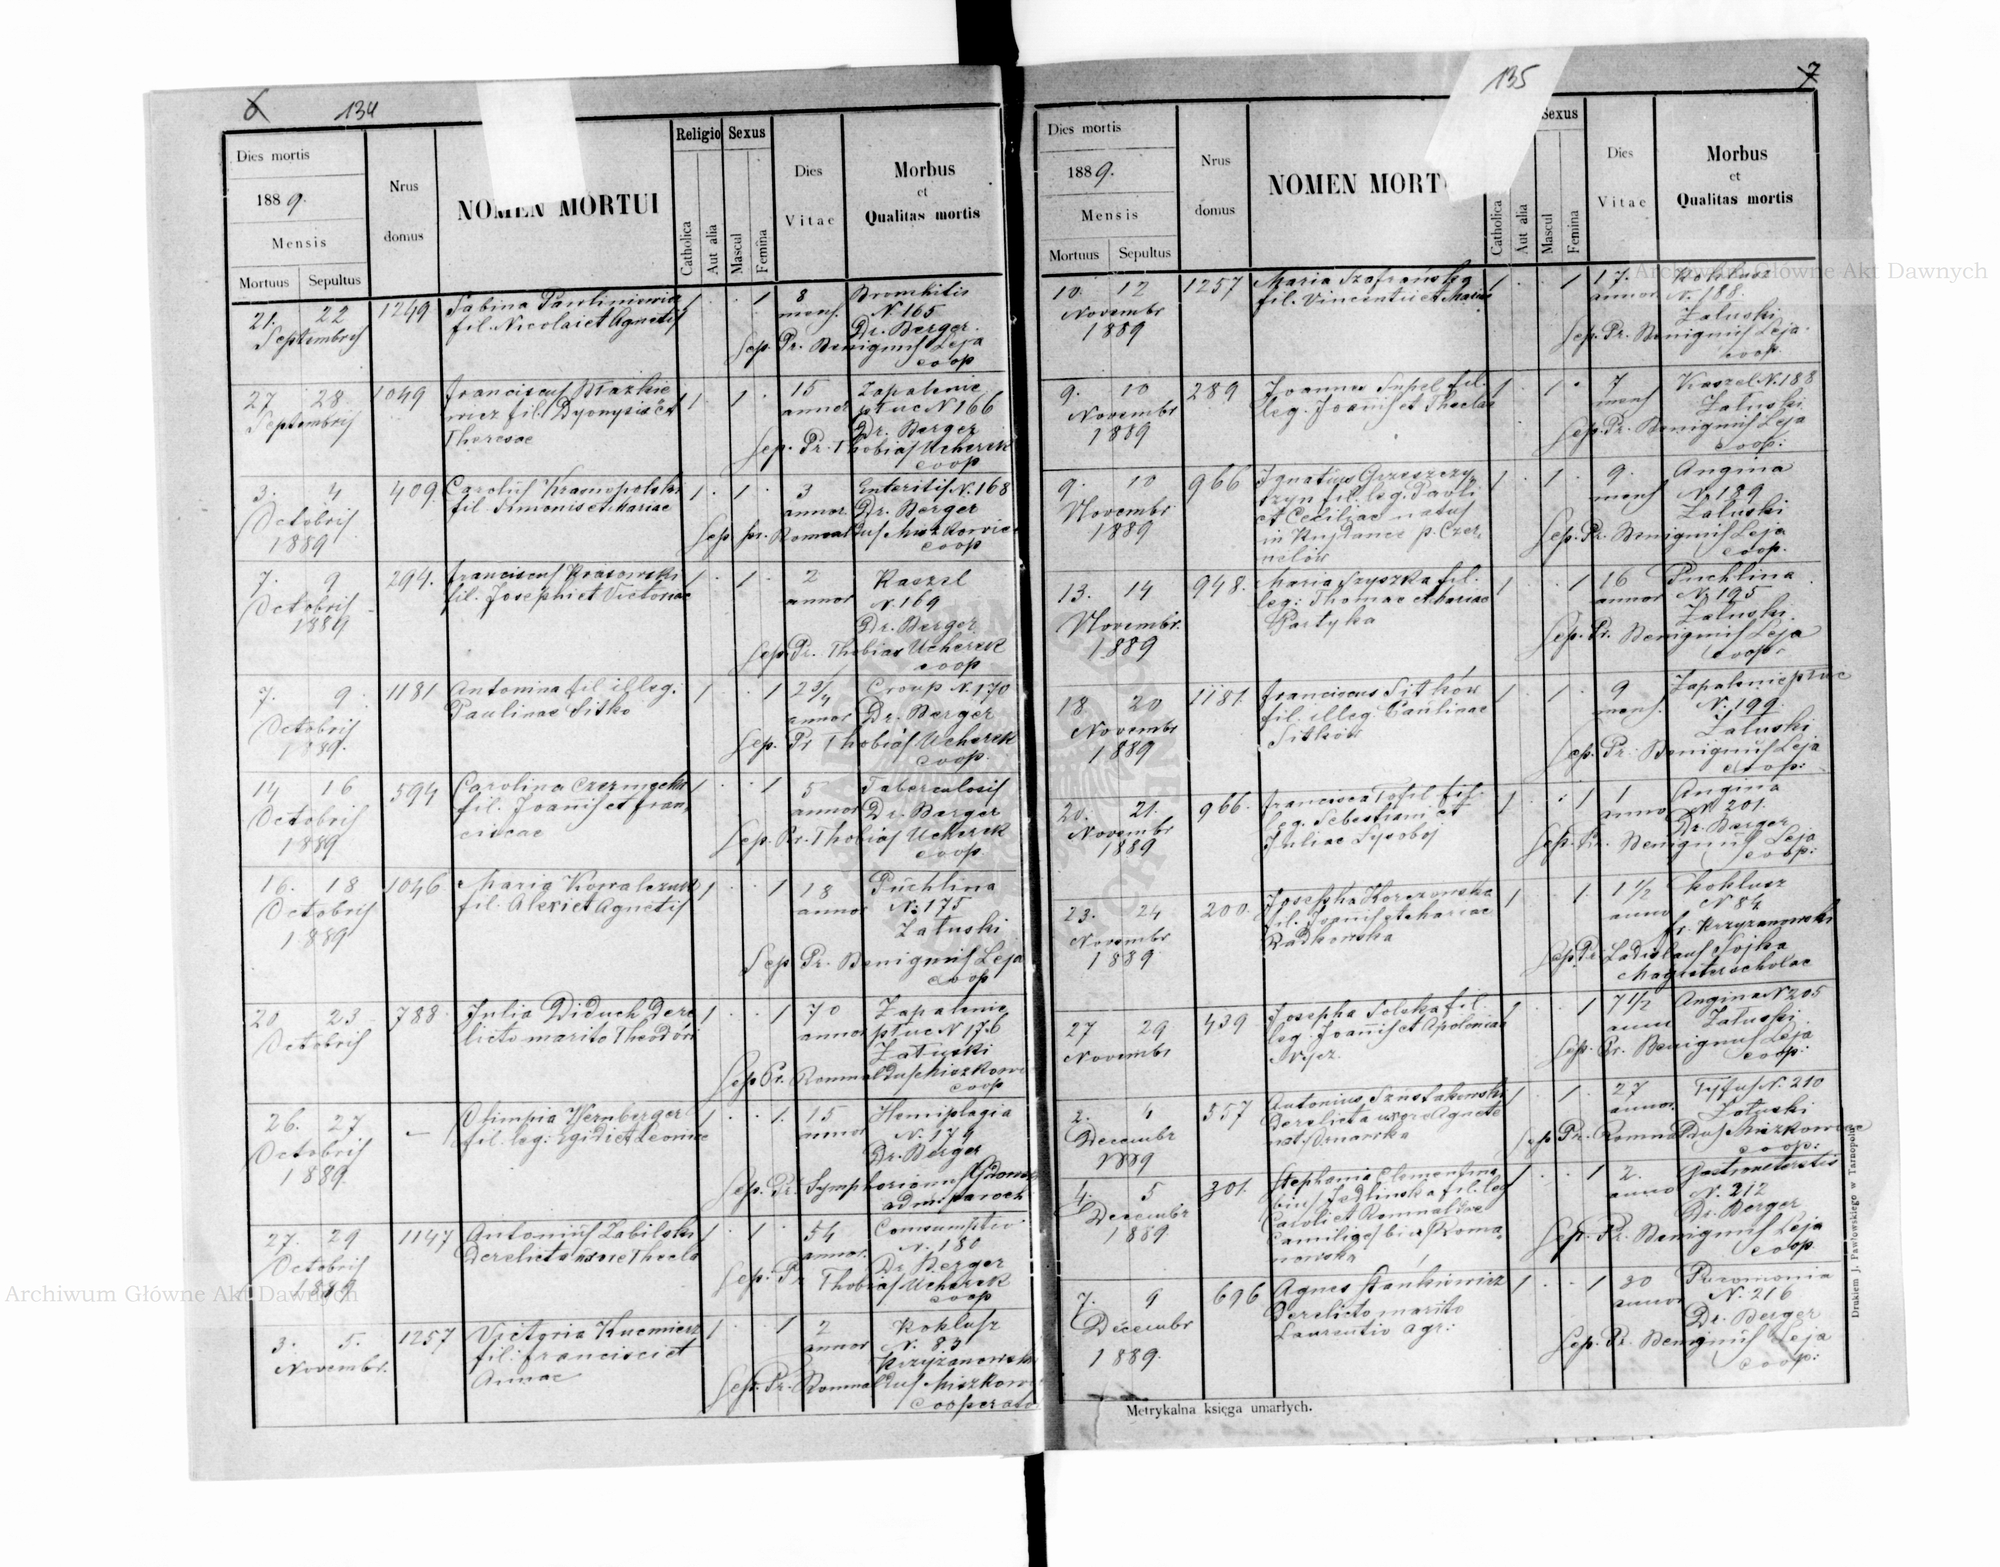 6 134
Dies mortis
1889.
Mensis
Mortuus Sepultus
Nrus domus
NOMEN MORTUI
Religio Sexus
Catholica
Aut alia
Mascul
Femina
Dies Vitae
Morbus
et
Qualitas mortis
21. 22 1249 Sabina 1 . . 1 8 Bronkitis
Septembris fil. Nicolai et Agnetis mens. N. 165
Dr. Berger
Sep. Pr. Benignus Leja
coop
27 28 1049 Franciscus 1 . 1 . 15 Zapalenie
Septembris fil. Dyonysii et annor płuc N 166
Theresae Dr. Berger
Sep. Pr. Thobias Ucherek
coop
3. 4 409 Carolus Krasnopolski 1 . 1 . 3 Enteritis N. 168
Octobris fil. Simonis et Mariae annor. Dr. Berger
1889 Sep. Pr. Romualdus
coop
7. 9 294. Franciscus Krasowski 1 . 1 . 2 Kaszel
Octobris fil. Josephi et Victoriae annor N. 169
1889 Dr. Berger
Sep. Pr. Thobias Ucherek
coop
7. 9. 1181 Antonina fil. illeg. 1 . . 1 2 3/4 Croup N. 170
Octobris Paulinae Sitko annor Dr. Berger
1889. Sep. Pr Thobias Ucherek
coop.
14 16 594 Carolina 1 . . 1 5 Tuberculosis
Octobris fil. Joanis et Fran- annor Dr. Berger
1889 ciscae Sep. Pr. Thobias Ucherek
coop.
16. 18 1046 Maria Kowalczuk 1 . . 1 18 Puchlina
Octobris fil. Alexi et Agnetis annor N. 175
1889 Załuski
Sep Pr. Benignus Leja
coop
20 23 788 Julia Diduch Dere- 1 . . 1 70 Zapalenie
Octobris licto marito Theodori annor płuc N 176
Załuski
Sep Pr. Romualdus
coop
26. 27 — Olimpia Wernberger 1 . . 1. 15 Hemiplagia
Octobris fil. leg: Egidi et Leonine annor N. 179
1889. Dr. Berger
Sep. Pr. Symphorianus
adm paroch
27. 29 1147 Antonius Zabilski 1 . 1 . 54 Consumptio
Octobris Derelicta uxore Thecla annor. N. 180
1889 Dr. Berger
Sep. Pr Thobias Ucherek
coop
3. 5. 1257 Victoria 1 . . 1 2 Koklusz
Novembr. fil: Francisci et annor N. 83
Annae Krzyżanowski
Sep. Pr. Romualdus
cooperator
135 7
Dies mortis
1889.
Mensis
Mortuus Sepultus
Nrus domus
NOMEN MORT
Sexus
Catholica
Aut alia
Mascul
Femina
Dies Vitae
Morbus
et
Qualitas mortis
10. 12 1257 Maria Szafrańska 1 . . 1 17. Koklusz
Novembr fil. Vincentii et Mariae annor N. 188.
1889 Załuski
Sep. Pr. Benignus Leja
coop.
9. 10 289 Joannes Supel fil. 1 . 1 . 7 Kaszel N. 188
Novembr leg. Joanis et Theclae mens Załuski
1889 Sep. Pr. Benignus Leja
coop:
9. 10 966 Ignatius 1 . 1 . 9. Angina
Novembr fil. leg. Pauli mens N. 189
1889 et Ceciliae natus Załuski
in p. Czer- Sep. Pr. Benignus Leja
nelów coop.
13. 14 948. Maria Szyszka fil. 1 . . 1 16 Puchlina
Novembr. leg: Thomae et Mariae annor N. 195
1889 Partyka Załuski
Sep. Pr. Benignus Leja
coop.
18 20 1181 Franciscus Sitków 1 . 1 . 9 Zapalenie płuc
Novembr fil. illeg. Paulinae mens. N. 199.
1889 Sitków Załuski
Sep. Pr. Benignus Leja
coop:
20. 21. 966. Francisca Tofil fil. 1 . . 1 1 Angina
Novembr leg. Sebestiani et anno N. 201.
1889 Juliae Lysoboj Dr. Berger
Sep. Pr. Benignus Leja
coop:
23. 24 200. Josepha 1 . . 1. 1 1/2 Koklusz
Novembr fil. Joanis et Mariae anno N 84
1889. Radkowska Krzyżanowski
Sep. Pr. Ladislaus Wojka
Magister scholae
27 29 439 Josepha Solska fil. 1 . . 1 7 1/2 Angina N 205
Novembr leg. Joannis et Apoloniae annor Załuski
Sep. Pr. Benignus Leja
coop:
2. 4 557 Antonius 1 . 1. . 27 Tyfus N. 210
Decembr Derelicta uxore Agnete annor. Załuski
1889 Sep. Pr. Romualdus
coop:
4. 5 301. Stephania Clementina 1 . . 1 2.
Decembr bin. Jedlinska fil. leg anno N. 212
1889. Caroli et Romualdae Dr. Berger
Camilige bin. Roma- Sep. Pr. Benignus Leja
nowska coop.
7. 9 696 Agnes Stankiewicz 1 . . 1 30 Pneomonia
Decembr Derelicto marito annor N. 216
1889. Laurentio agr: Dr. Berger
Sep. Pr. Benignus Leja
coop:
Metrykalna księga umarłych.
Drukiem J. Pawłowskiego w Tarnopolu.
Archiwum Główne Akt Dawnych
Archiwum Główne Akt Dawnych